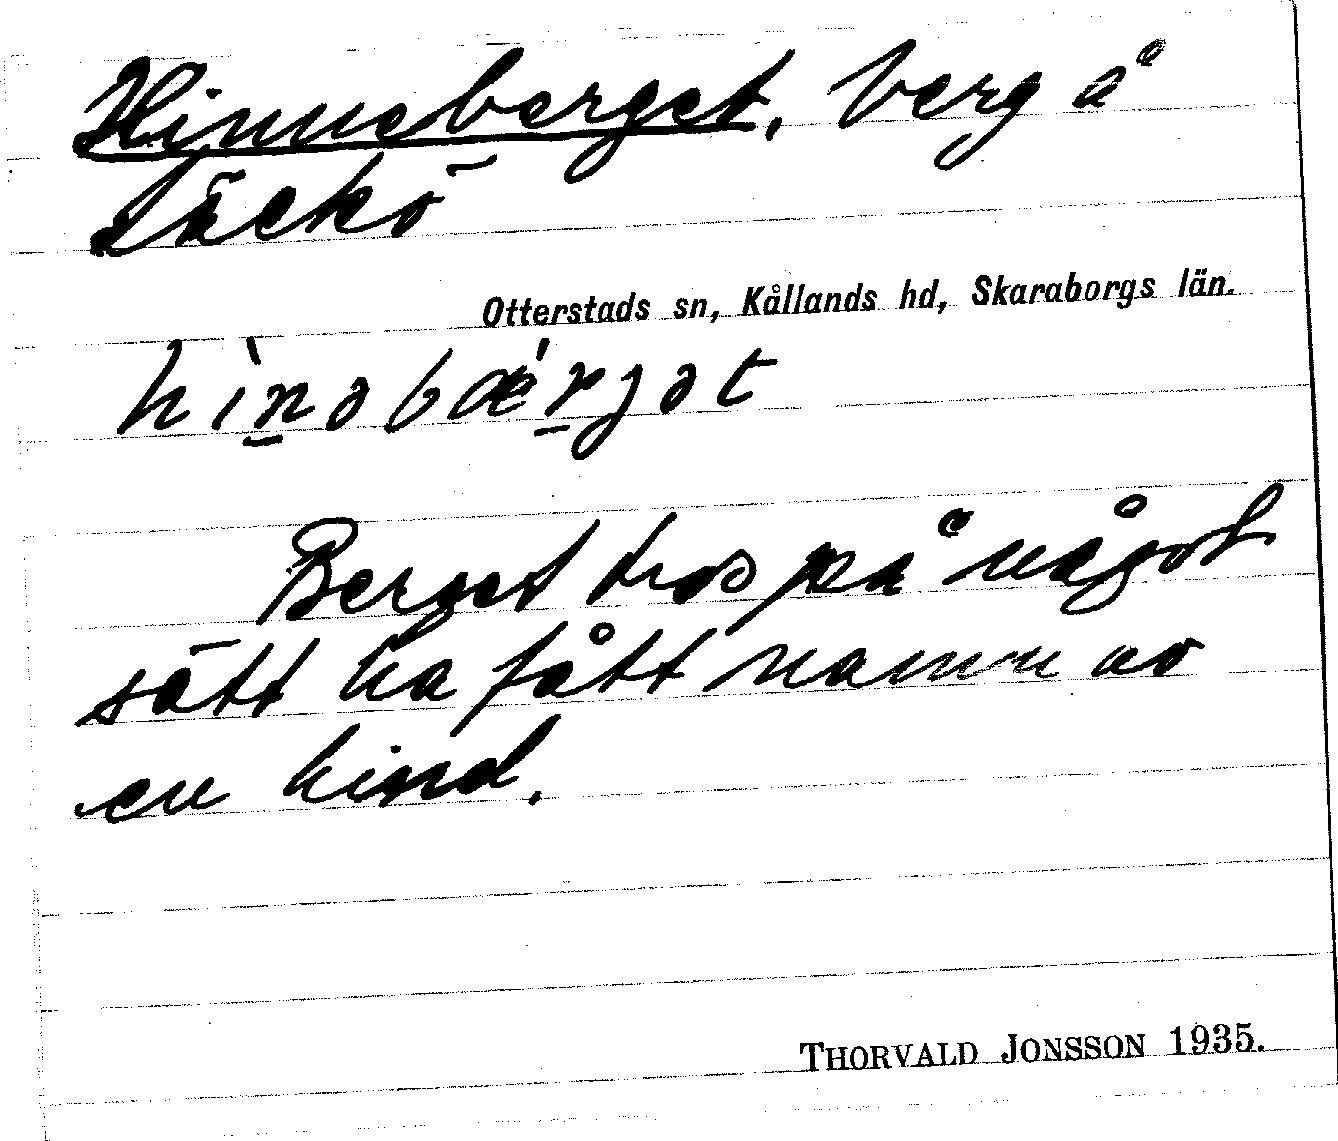 Hinneberget, berg å
Läckö
Otterstads sn, Kållands hd, Skaraborgs län.
hìn̲əbǽr̲jət
Berget tros på något
sätt ha fått namn av
en hind.
THORVALD JONSSON 1935.